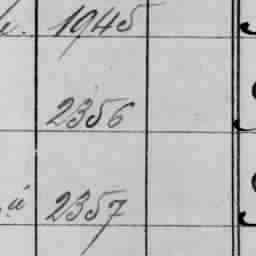 1945
2356
2357